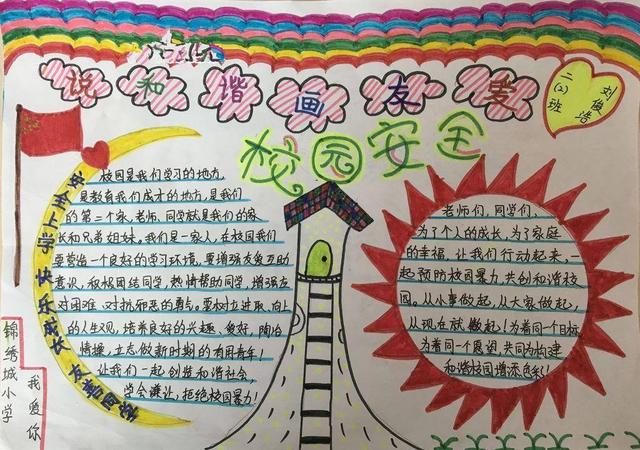 说和谐画友爱
二(2)班
刘俊浩
校园安全
安全上学 快乐成长
校园是我们学习的地方,
是教育我们成才的地方,是我们
的第二个家,老师、同学就是我们的家
长和兄弟姐妹,我们是一家人,在校园我们
要营造一个良好的学习环境,要增强友爱互助
意识,积极团结同学,热情帮助同学,增强友
对困难、对抗邪恶的勇气。要树立进取、向上
的人生观,培养良好的兴趣、爱好,陶冶
情操,立志做新时期的有用青年!
让我们一起创造和谐社会,
学会谦让,拒绝校园暴力!
老师们,同学们,
为了个人的成长,为了家庭
的幸福,让我们行动起来,一
起预防校园暴力,共创和谐校
园。从小事做起,从大家做起,
从现在就做起!为着同一个目标,
为着同一个愿望,共同为构建
和谐校园增添色彩!
锦绣城小学
我爱你